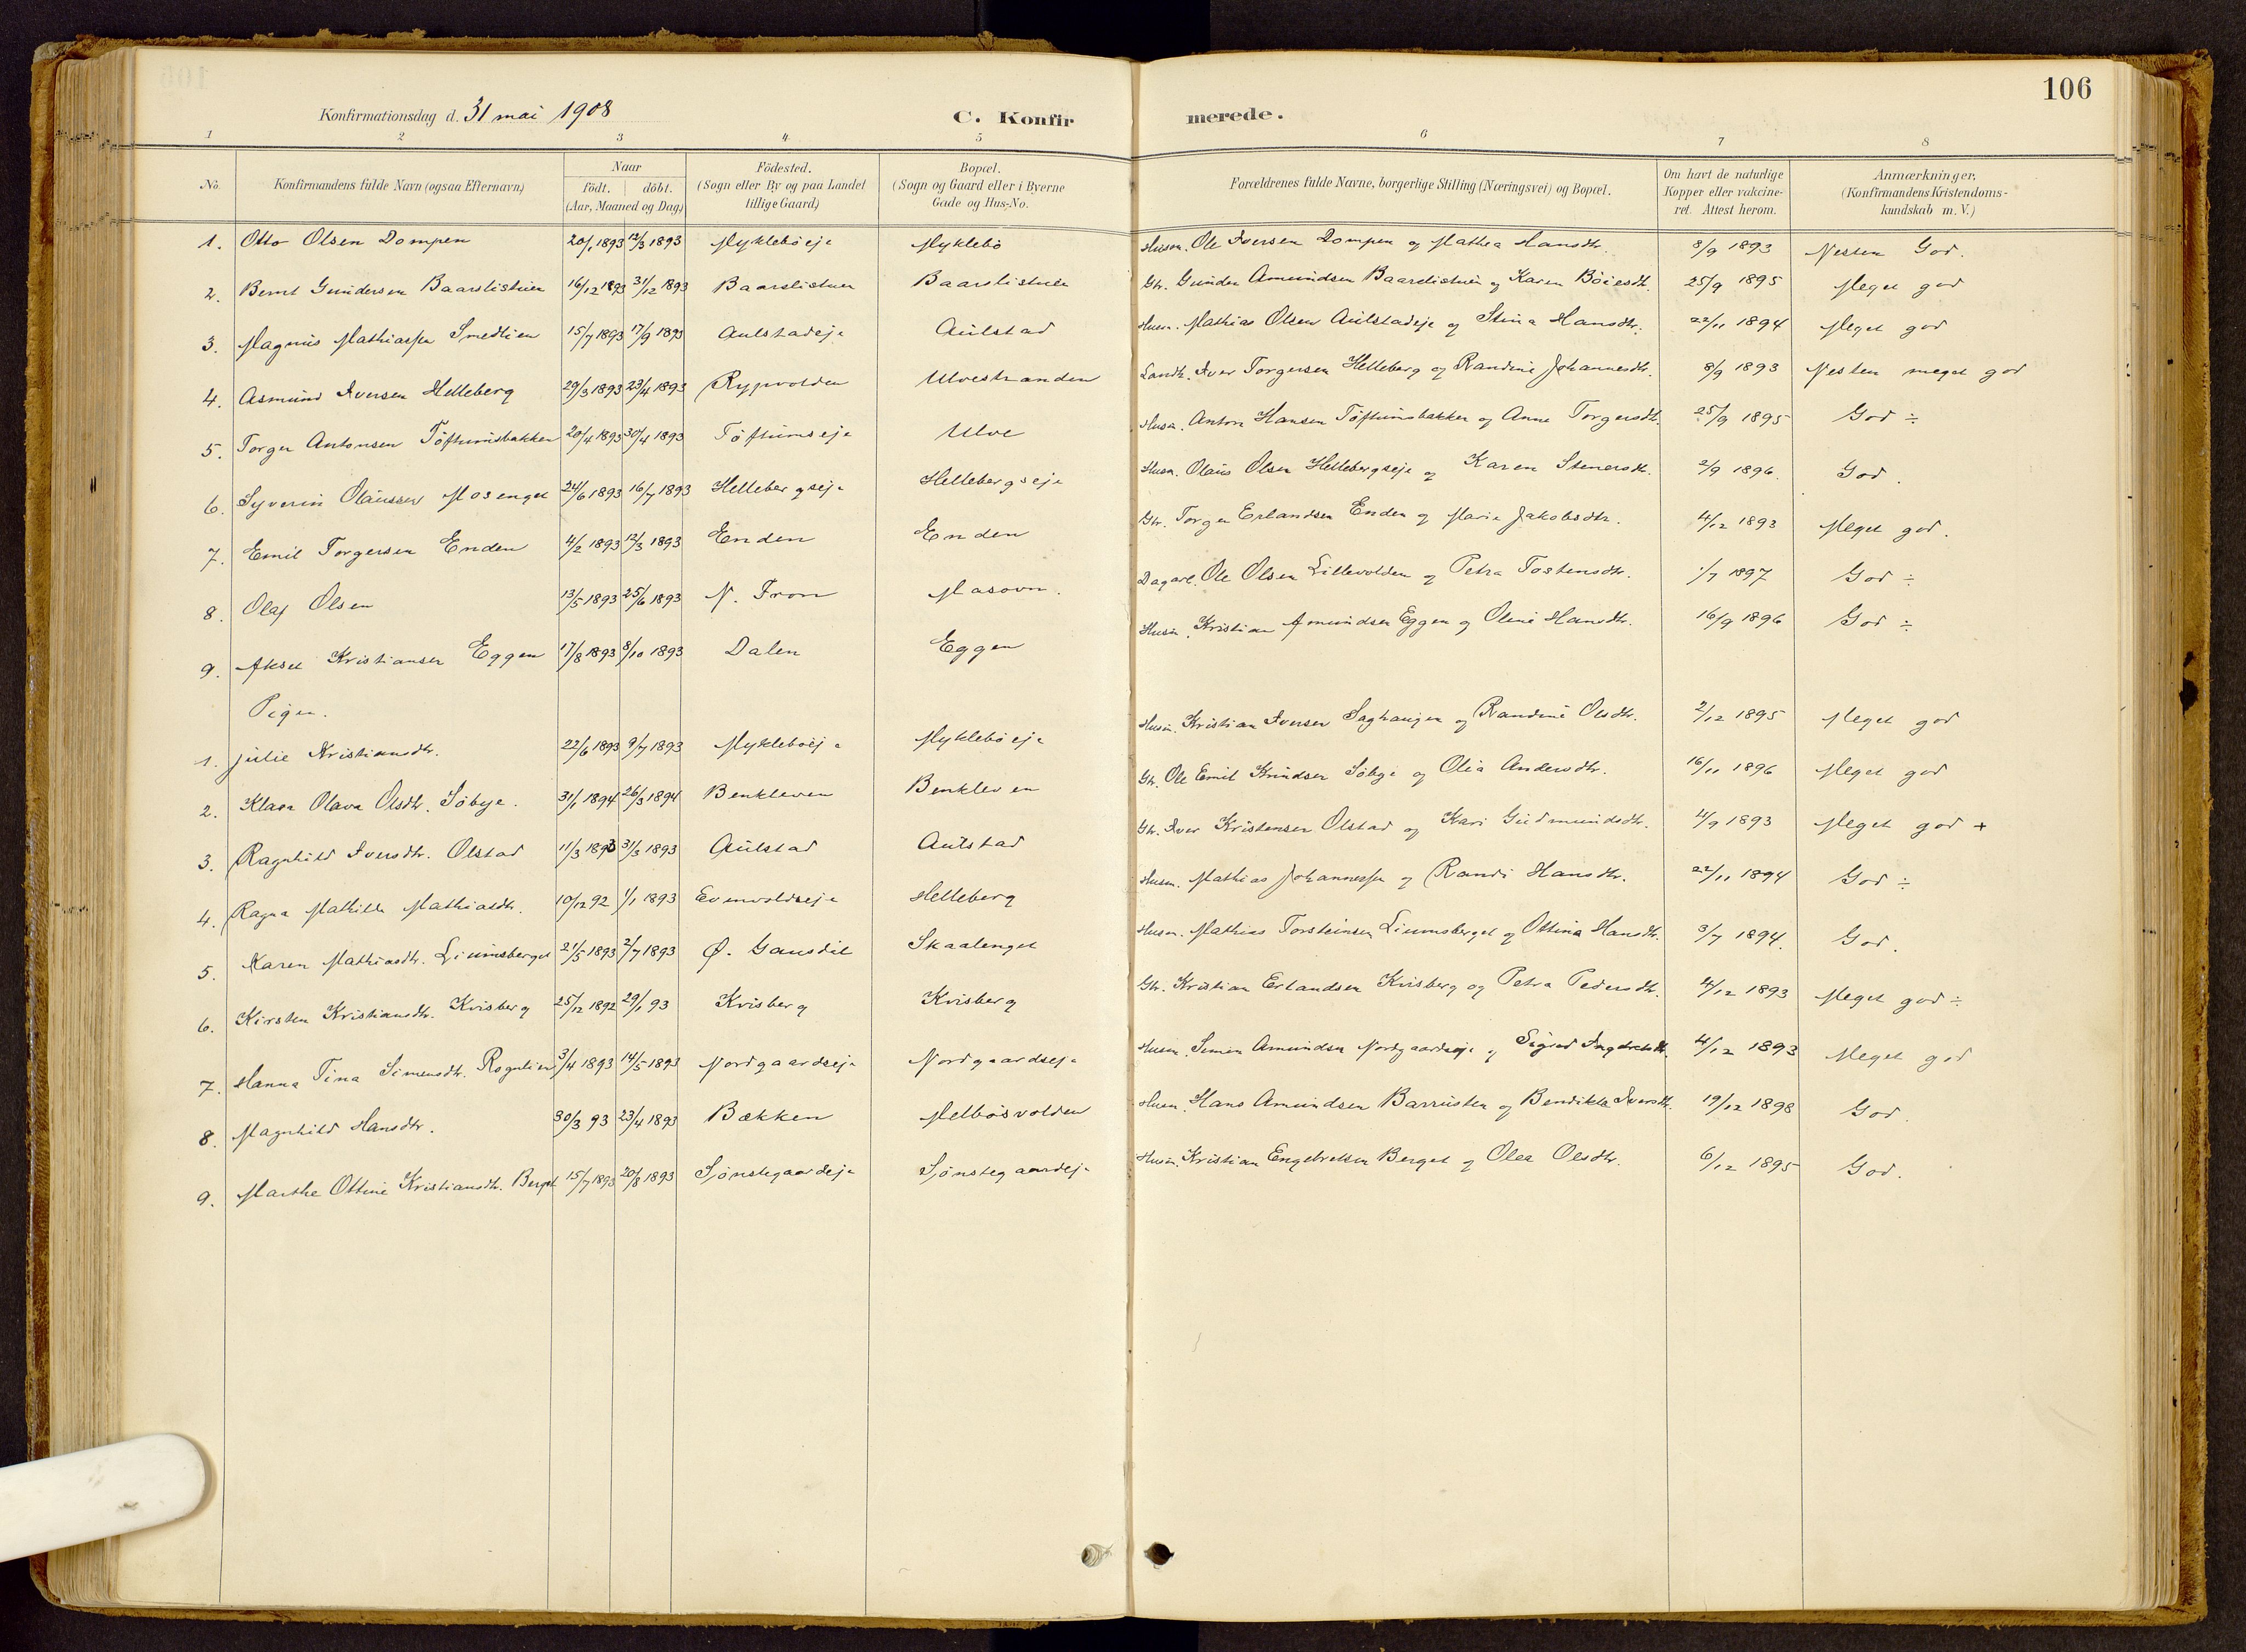 106
Konfirmationsdag d. 31 mai 1908 C. Konfirmerede.
1 2 3 4 5 6 7 8
No. Konfirmandens fulde Navn (ogsaa Efternavn) Naar födt. döbt. (Aar, Maaned og Dag) Födested. (Sogn eller By og paa Landet tillige Gaard) Bopæl. (Sogn og Gaard eller i Byerne Gade og Hus-No. Forældrenes fulde Navne, borgerlige Stilling (Næringsvei) og Bopæl. Om havt de naturlige Kopper eller vakcineret. Attest herom. Anmærkninger. (Konfirmandens Kristendomskundskab m. V.)
1. Otto Olsen Dompen 20/1 1893 12/3 1893 Mykleböeje Myklebö Husm. Ole Iversen Dompen og Mathea Hansdtr. 8/9 1893 Nesten God.
2. Bernt Gundersen Baarslistuen 16/12 1893 31/12 1893 Baarslistuen Baarslistuen Gbr. Gunder Amundsen Baarslistuen og Karen Böiesdtr. 25/9 1895 Meget god
3. Magnus Mathiassen Smedlien 15/7 1893 17/9 1893 Aulstadeje Aulstad Husm. Mathias Olsen Aulstadeje og Stina Hansdtr. 22/11 1894 Meget god
4. Asmund Iversen Helleberg 29/3 1893 23/4 1893 Rypvolden Ulvestranden Landh. Iver Torgersen Helleberg og Randine Johannesdtr. 8/9 1893 Nesten meget god
5. Torger Antonsen Töftumsbakken 20/4 1893 30/4 1893 Töftumseje Ulve Husm. Anton Hansen Töftumsbakken og Anne Torgersdtr. 25/9 1895 God ÷
6. Syverin Olaussen Mosenget 24/6 1893 16/7 1893 Hellebergseje Hellebergseje Husm. Olaus Olsen Hellebergseje og Karen Stenersdtr. 2/9 1896. God.
7. Emil Torgersen Enden 4/2 1893 12/3 1893 Enden Enden Gbr. Torger Erlandsen Enden og Marie Jakobsdtr. 4/12 1893 Meget god.
8. Olaf Olsen 13/5 1893 25/6 1893 N. Fron Masovn. Dagarb. Ole Olsen Lillevolden og Petra Tostensdtr. 1/7 1897 God ÷
9. Aksel Kristiansen Eggen 17/8 1893 8/10 1893 Dalen Eggen Husm. Kristian Amundsen Eggen og Oline Hansdtr. 16/9 1896 God ÷
Piger.
1. Julie Kristiansdtr. 22/6 1893 9/7 1893 Mykleböeje Mykleböeje Husm. Kristian Iversen Saghaugen og Randine Olsdtr. 2/12 1895 Meget god
2. Klara Olava Olsdtr. Söbye. 31/1 1894 26/3 1894 Benkleven Benkleven Gbr. Ole Emil Knudsen Söbye og Olia Andersdtr. 16/11 1896 Meget god
3. Ragnhild Iversdtr. Olstad 11/3 1893 31/3 1893 Aulstad Aulstad Gbr. Iver Kristensen Olstad og Kari Gudmundsdtr. 4/9 1893 Meget god +
4. Ragna Mathilde Mathiasdtr. 10/12 92 1/1 1893 Evenvoldseje Helleberg Husm. Mathias Johannessen og Randi Hansdtr. 22/11 1894 God ÷
5. Karen Mathiasdtr. Liumsberget 21/5 1893 2/7 1893 Ø. Gausdal Skaalenget Husm. Mathias Torsteinsen Liumsberget og Ottina Hansdtr. 3/7 1894. God.
6. Kirsten Kristiansdtr. Kvisberg 25/12 1892 29/1 93 Kvisberg Kvisberg Gbr. Kristian Erlandsen Kvisberg og Petra Pedersdtr. 4/12 1893 Meget god ÷
7. Hanna Tina Simensdtr. Rognlien 3/4 1893 14/5 1893 Nordgaardseje Nordgaardseje Husm. Simen Amundsen Nordgaardseje og Sigrid Ingebretsdtr. 4/12 1893 Meget god
8. Magnhild Hansdtr. 30/3 93 23/4 1893 Bækken Melbösvolden Husm. Hans Amundsen Barrusten og Bendikte Iversdtr. 19/12 1898 God.
9. Marthe Ottine Kristiansdtr. Berget 15/7 1893 20/8 1893 Sjönstegaardeje Sjönstegaardeje Husm. Kristian Engebretsen Berget og Olea Olsdtr. 6/12 1895 God.